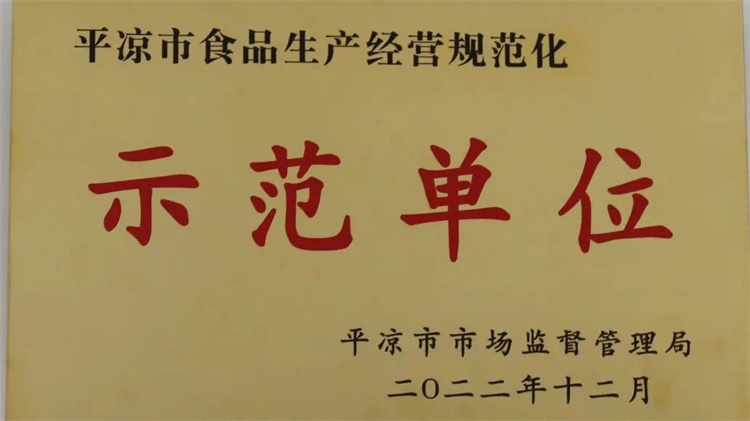 平凉市食品生产经营规范化
示范单位
平凉市市场监督管理局
二〇二二年十二月